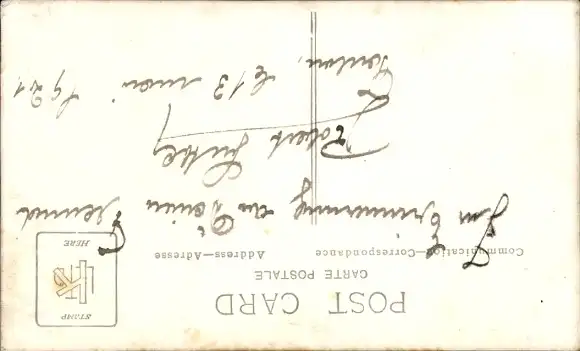 POST CARD
CARTE POSTALE
Communication—Correspondance
Address—Adresse
STAMP
HERE
Zur Erinnerung an Deinen Freund
Robert
Toulon, le 13 mai 1921